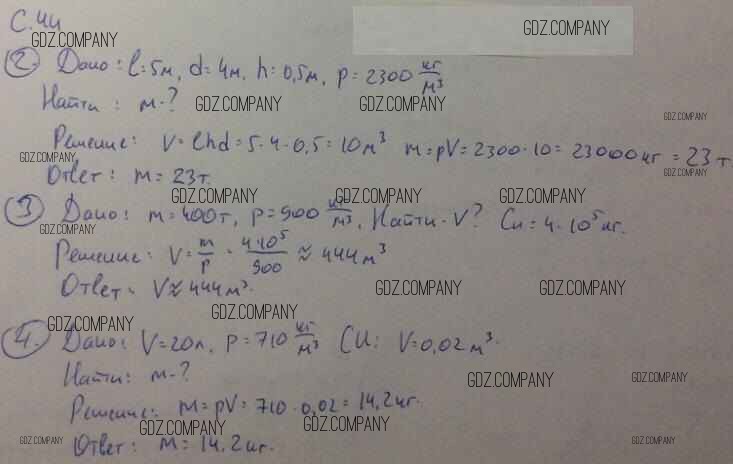 С.44
GDZ.COMPANY
GDZ.COMPANY
2. Дано: l=5м, d=4м, h=0,5м, p=2300 кг/м³
Найти: m-?
GDZ.COMPANY
GDZ.COMPANY
GDZ.COMPANY
Решение: V=lhd=5·4·0,5=10м³ m=pV=2300·10=23000кг=23т
GDZ.COMPANY
GDZ.COMPANY
Ответ: m=23т.
GDZ.COMPANY
GDZ.COMPANY
GDZ.COMPANY
3 Дано: m=400т, p=900 кг/м³, Найти-V? Си=4·10⁵кг.
GDZ.COMPANY
Решение: V=m/p=4·10⁵/900≈444м³
Ответ: V≈444м³.
GDZ.COMPANY
GDZ.COMPANY
GDZ.COMPANY
GDZ.COMPANY
4. Дано: V=20л, p=710 кг/м³ СИ: V=0,02м³.
Найти: m-?
GDZ.COMPANY
GDZ.COMPANY
Решение: m=pV=710·0,02=14,2кг.
GDZ.COMPANY
GDZ.COMPANY
GDZ.COMPANY
GDZ.COMPANY
Ответ: m=14,2кг.